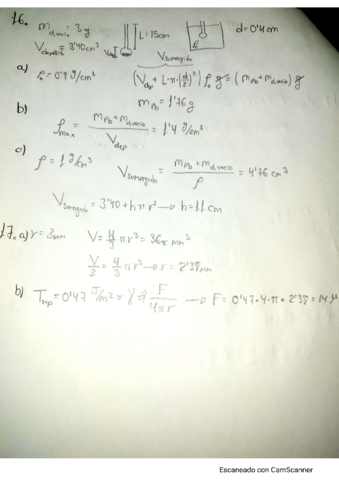 16. m_d,vacío = 3 g
V_depósito = 3'40 cm³
L = 15 cm
d = 0'4 cm
V_sumergido
a) ρ = 0'9 g/cm³ (V_dep + L·π·(d/2)²) ρ₀ g = (m_Pb + m_d,vacío) g
m_Pb = 1'76 g
b) ρ_max = (m_Pb + m_d,vacío) / V_dep = 1'4 g/cm³
c) ρ = 1 g/cm³ V_sumergido = (m_Pb + m_d,vacío) / ρ = 4'76 cm³
V_sumergido = 3'40 + h π r² → h = 11 cm
17. a) r = 3 mm V = 4/3 π r³ = 36π mm³
V/2 = 4/3 π r³ → r = 2'38 mm
b) T_sup = 0'47 J/m² = γ = F / 4πr → F = 0'47 · 4 · π · 2'38 =
Escaneado con CamScanner